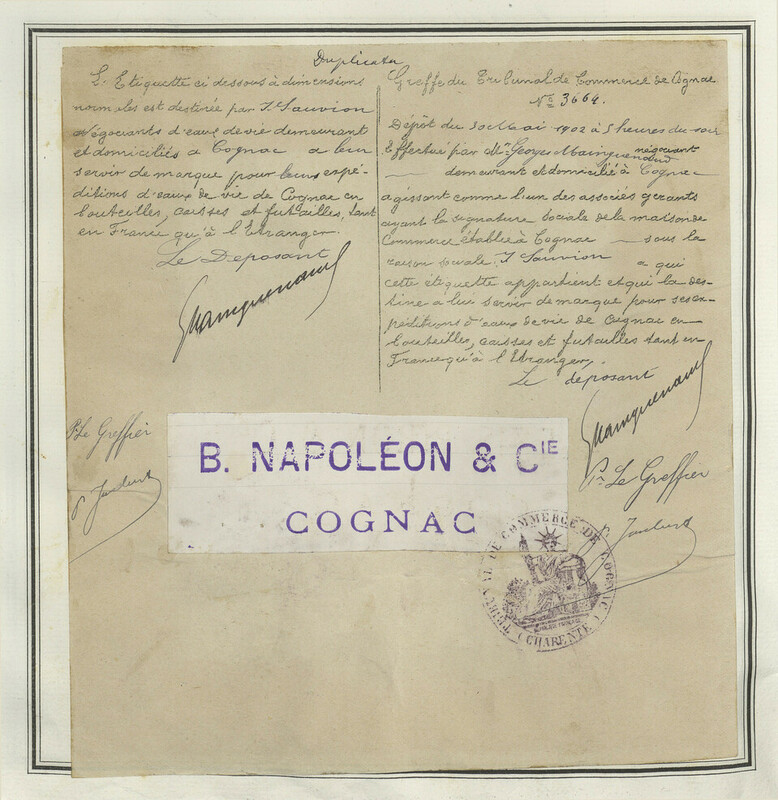 Duplicata
L'Etiquette ci dessous à dimensions
normales est destinée par J. Sauvion
Négociants d'eaux de vie demeurant
et domiciliés à Cognac a leur
servir de marque pour leurs expé-
ditions d'eaux de vie de Cognac en
bouteilles, caisses et futailles, tant
en France qu'à l'Etranger.
Le Deposant
Gmainguenaud
Pr Le Greffier
Greffe du Tribunal de Commerce de Cognac
No 3664.
Dépôt du Mai 1902 à 5 heures du soir
Effectué par Mr Georges Mainguenaud négociant
demeurant et domicilié à Cognac
agissant comme l'un des associés gérants
ayant la signature sociale de la maison de
Commerce établie à Cognac — sous la
raison sociale J. Sauvion a qui
cette étiquette appartient et qui la des-
tine à lui servir de marque pour ses ex-
péditions d'eaux de vie de Cognac en
bouteilles, caisses et futailles tant en
France qu'à l'Etranger.
Le déposant
Gmainguenaud
Pr Le Greffier
B. NAPOLÉON & CIE
COGNAC
TRIBUNAL DE COMMERCE DE COGNAC
(CHARENTE)